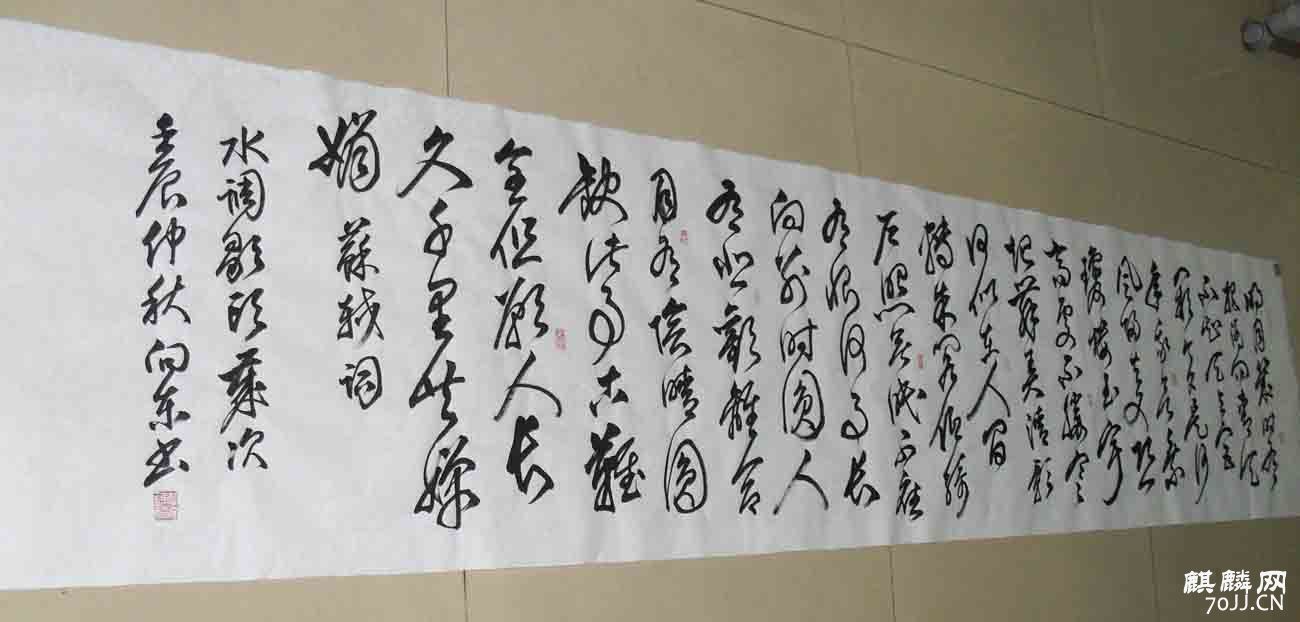 明月幾时有
把酒问青天
不知天上宫
阙今夕是何
年我欲乘
风归去又恐
瓊楼玉宇
高处不胜寒
起舞弄清影
何似在人间
轉朱阁低绮
户照无眠不應
有恨何事长
向别时圆人
有悲歡離合
月有陰晴圆
缺此事古難
全但願人长
久千里共婵
娟 蘇轼词
水调歌头
壬辰仲秋向东书
麒麟网
70JJ.CN